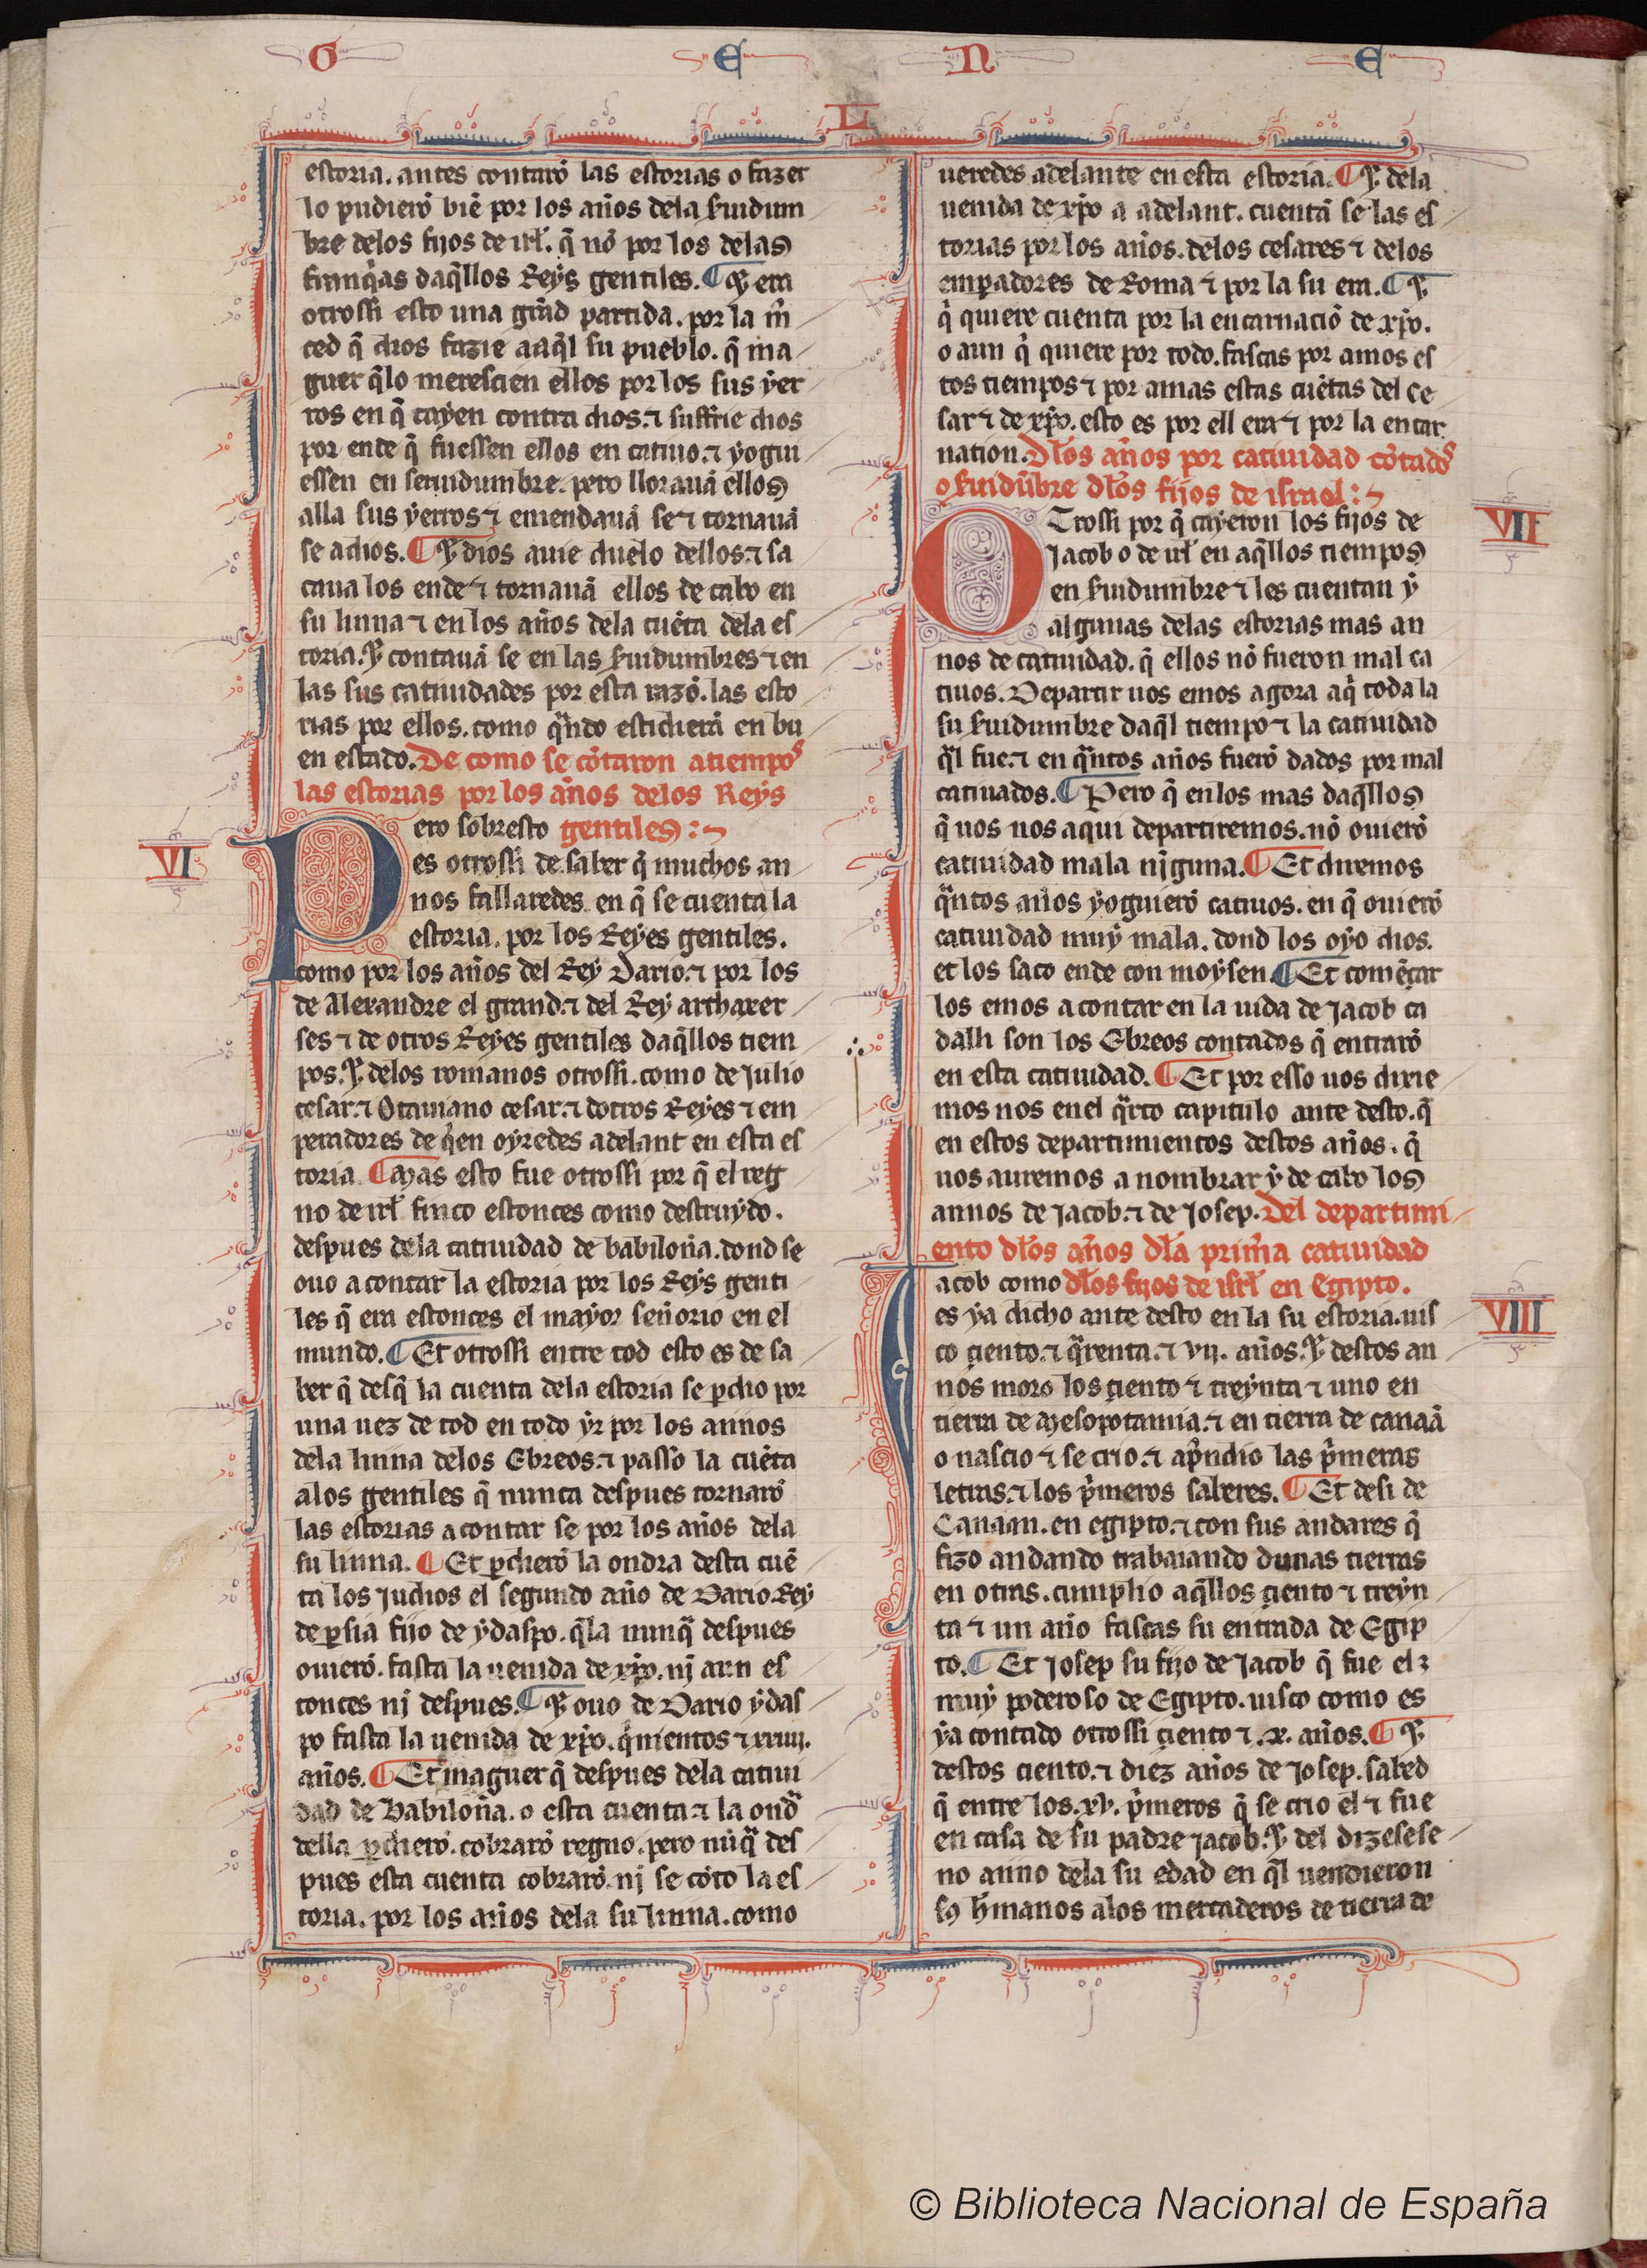 G E N E
L
estoria. antes contarō las estorias o fazer
lo pudierō biē por los años dela suidum
bre delos fijos de irl̄. q̄ nō por los delas
franq̄as daq̄llos Reyẏs gentiles. ¶ Y era
otrossi esto una grād partida. por la m̄
ced q̄ dios fazie a aq̄l su pueblo. q̄ ma
guer q̄lo merescien ellos por los sus yer
ros en q̄ cayen contra dios. ⁊ suffrie dios
por ende q̄ fuessen ellos en catiuo. ⁊ yogui
essen en seruidumbre. pero llorauā ellos
alla sus yerros ⁊ emendauā se ⁊ tornauā
se a dios. ¶ Y dios auie duelo dellos. ⁊ sa
caua los ende ⁊ tornauā ellos de cabo en
su linna ⁊ en los años dela cuēta dela es
toria. Y contauā se en las suidumbres ⁊ en
las sus catiuidades por esta razō. las esto
rias por ellos. como q̄ndo estidierā en bu
en estado. De como se cōtaron a tiempos
las estorias por los años delos Reyẏs
ero sobresto gentiles:
VI
P es otrossi de saber q̄ muchos an
nos fallaredes en q̄ se cuenta la
estoria. por los Reyes gentiles.
como por los años del Rey Dario. ⁊ por los
de Alexandre el grand. ⁊ del Rey arthaxer
ses ⁊ de otros Reyes gentiles daq̄llos tiem
pos. Y delos romanos otrossi. como de Julio
cesar. ⁊ Otauiano cesar. ⁊ dotros Reyes ⁊ em
peradores de q̄en oyredes adelant en esta es
toria ¶ Mas esto fue otrossi por q̄ el reg
no de irl̄ finco estonces como destruydo.
despues dela catiuidad de babiloña. dond se
ouo a contar la estoria por los Reyẏs genti
les q̄ era estonces el mayor señorio en el
mundo. ¶ Et otrossi entre tod esto es de sa
ber q̄ desq̄ la cuenta dela estoria se ꝑdio por
una uez de tod en todo yr por los annos
dela linna delos Ebreos. ⁊ passo la cuēta
alos gentiles q̄ nunca despues tornarō
las estorias a contar se por los años dela
su linna. ¶ Et ꝑdierō la ondra desta cuē
ta los Judios el segundo año de Dario Rey
de ꝑsia fijo de ydaspo. q̄la nunq̄ despues
ouierō. fasta la uenida de xp̄o. nj aun es
tonces nj despues. ¶ Y ouo de Dario ydas
po fasta la uenida de xp̄o. q̄nientos ⁊ xxiiij.
años. ¶ Et maguer q̄ despues dela catiui
dad de Babiloña. o esta cuenta ⁊ la ondr̄
della ꝑdierō. cobrarō regno. pero nūq̄ des
pues esta cuenta cobrarō. nj se cōto la es
toria. por los años dela su linna. como
ueredes adelante en esta estoria. ¶ Y dela
uenida de xp̄o a adelant. cuentā se las es
torias por los años. delos cesares ⁊ delos
emꝑadores de Roma ⁊ por la su era. ¶ Y
q̄ quiere cuenta por la encarnaciō de xp̄o.
o aun q̄ quiere por todo. fascas por amos es
tos tiempos ⁊ por amas estas cuētas del Ce
sar ⁊ de xp̄o. esto es por ell era ⁊ por la encar
nation. Dlos años por catiuidad cōtados
o suidūbre dlos fijos de israel:
VII
O Trossi por q̄ cayeron los fijos de
Jacob o de irl̄ en aq̄llos tiempos
en suidumbre ⁊ les cuentan y
algunas delas estorias mas an
nos de catiuidad. q̄ ellos nō fueron mal ca
tiuos. Departir uos emos agora aq̄ toda la
su suidumbre daq̄l tiempo ⁊ la catiuidad
q̄l fue. ⁊ en q̄ntos años fuerō dados por mal
catiuados. ¶ Pero q̄ en los mas daq̄llos
q̄ uos nos aqui departiremos. nō ouierō
catiuidad mala nj̄guna. ¶ Et diremos
q̄ntos años yoguierō catiuos. en q̄ ouierō
catiuidad muẏ mala. dond los oyo dios.
et los saco ende con moysen. ¶ Et começar
los emos a contar en la uida de Jacob ca
dalli son los Ebreos contados q̄ entrarō
en esta catiuidad. ¶ Et por esso uos dixie
mos nos enel q̄rto capitulo ante desto. q̄
en estos departimientos destos años. q̄
uos auremos a nombrar y de cabo los
annos de Jacob. ⁊ de Josep. Del departimi
ento dlos años dla prim̄a catiuidad
acob como dlos fijos de isrl̄ en Egipto.
VIII
I es ya dicho ante desto en la su estoria. uis
co çiento. ⁊ q̄renta. ⁊ vij. años. Y destos an
nos moro los çiento ⁊ treynta ⁊ uno en
tierra de Mesopotamia. ⁊ en tierra de canaā
o nascio ⁊ se crio. ⁊ ap̄ndio las p̄meras
letras. ⁊ los p̄meros saberes. ¶ Et desi de
Canaan. en egipto. ⁊ con sus andares q̄
fizo andando trabaiando dunas tierras
en otras. cumplio aq̄llos çiento ⁊ treyn
ta ⁊ un año fascas su entrada de Egip
to. ¶ Et Josep su fijo de Jacob q̄ fue el
muẏ poderoso de Egipto. uisco como es
ya contado otrossi çiento ⁊ .x. años. ¶ Y
destos ciento. ⁊ diez años de Josep. sabed
q̄ entre los .xv. p̄meros q̄ se crio el ⁊ fue
en casa de su padre Jacob. Y del dizesese
no anno dela su edad en q̄l uendieron
sꝯ h̄manos alos mercaderos de tierra de
© Biblioteca Nacional de España